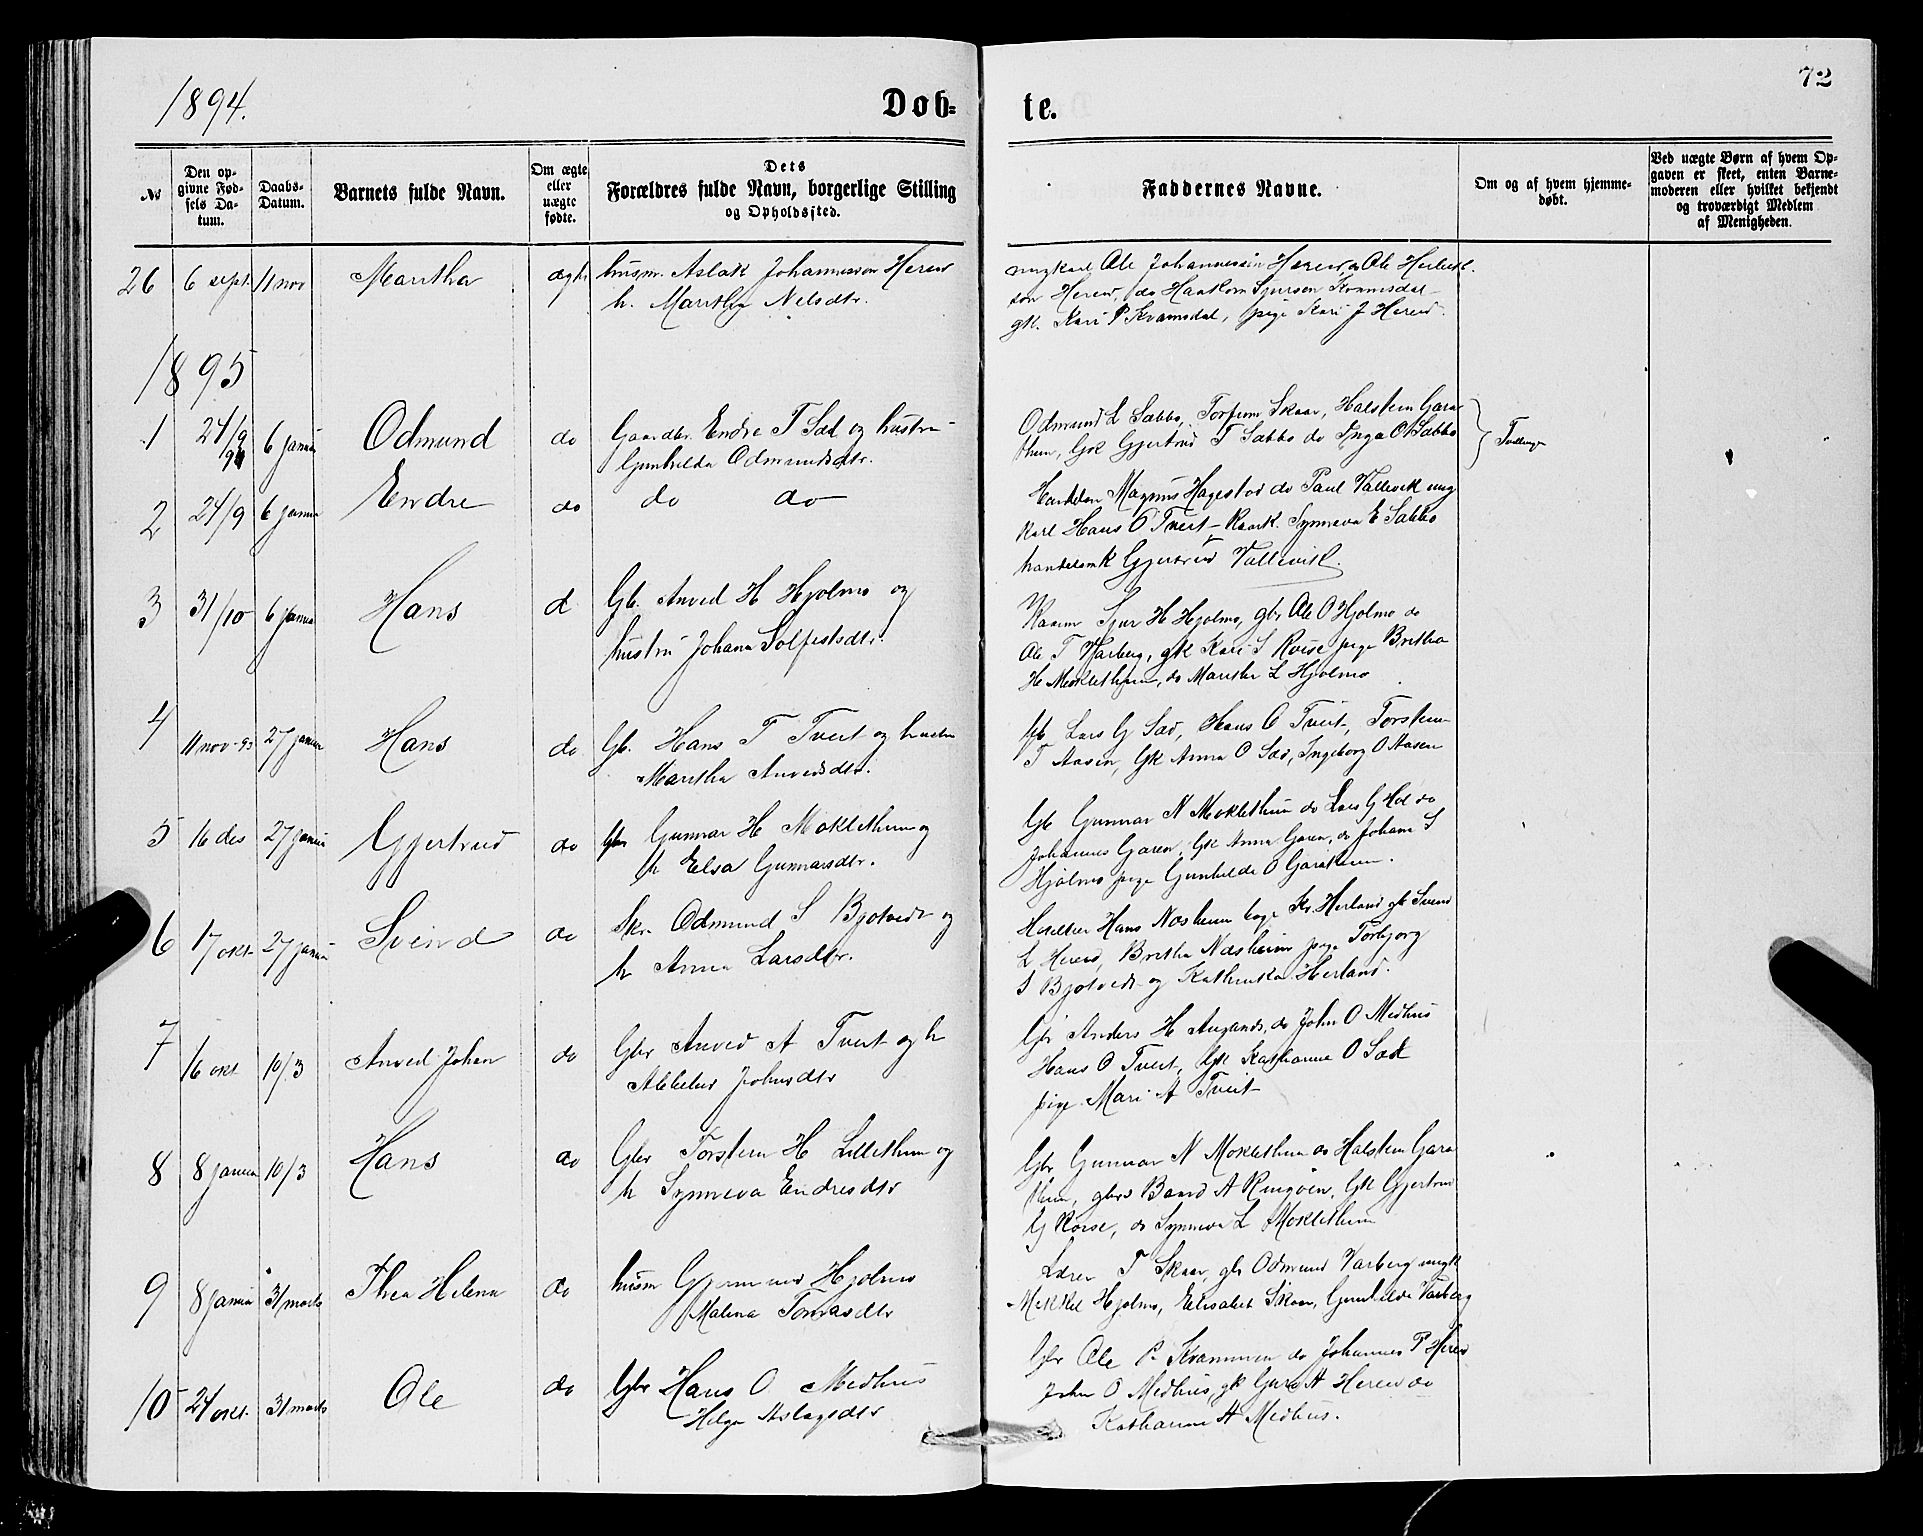 72
1894.
Døb-
te.
No
Den opgivne Fødsels Datum.
Daabs-Datum.
Barnets fulde Navn.
Om ægte eller uægte fødte.
Dets Forældres fulde Navn, borgerlige Stilling og Opholdssted.
Faddernes Navne.
Om og af hvem hjemmedøbt.
Ved uægte Børn af hvem Opgaven er skeet, enten Barnemoderen eller hvilket bekjendt og troværdigt Medlem af Menigheden.
26 6 sept. 11 nov Martha ægte husm. Aslak Johannesson Hereid
h. Martha Nelsdtr.
ungkarl Ole Johannessen Hereid,
son Hereid, do Haakon Sjursen Kvamsdal
gk. Kari P Kvamsdal, pige Kari J Hereid
1895
1 24/9 94 6 januar Odmund do Gaardbr. Endre T Sæd og hustru
Gunhilda Odmundsdtr.
Odmund L Sæbbø, Torfinn Skaar, Halstein Gara
thun, Gk Gjertrud T Sæbbø do Inga O Sæbbø
Tvillinger
2 24/9 6 januar Endre do do do
Magnus Hagestad do Paul Vallevik ung
karl Hans O Tveit Synneva E Sæbbø
handelsmk Gjertrud Vallevik.
3 31/10 6 januar Hans d Gb. Anved H Hjolmo og
hustru Johana Solfestsdtr.
Sjur H Hjolmo, gbr Ole O Hjolmo do
Ole T Varberg, gk Kari S Røise pige Britha
H Moklethun, do Martha L Hjolmo
4 11 nov 27 januar Hans do Gb. Hans T Tveit og hustru
Martha Anvedsdtr.
Gb Lars G Sæd, Hans O Tveit, Torstein
T Aasen, Gk Anna O Sæd, Ingeborg O Aasen
5 16 des 27 januar Gjertrud do Gbr Gunnar H Moklethun og
h Elsa Gunnarsdtr.
Gb Gunnar N Moklethun do Lars G Hol do
Johannes Garen, Gk Anna Garen, do Johana S
Hjolmo pige Gunhilde O Garathun.
6 17 okt. 27 januar Svend do Skr. Odmund S Bjotveit og
h Anna Larsdtr.
Hans Næsheim Kr. Herland gk Svend
L Hereid, Britha Næsheim pige Torbjørg
S Bjotveit og Kathrinka Herland.
7 16 okt 10/3 Anved Johan do Gbr Anved A Tveit og h
Johnsdtr
Gbr Anders H Augands, do John O Medhus
Hans O Tveit, Gk Katharine O Sæd
pige Mari A Tveit
8 8 januar 10/3 Hans do Gbr Torstein H Lillethun og
h Synneva Endresdtr
Gbr Gunnar N Moklethun do Halstein Gara
thun, gbrs Baard A Ringøen, Gk Gjertrud
G Røise, do Synneva L Moklethun
9 8 januar 31 marts Thea Helena do husm Gjermund Hjolmo
Malena Tomasdtr
Lærer T Skaar, gbr Odmund Varberg ungk
Mikkel Hjolmo, Elisabet Skaar, Gunhilde Varberg
10 24 okt. 31 marts Ole do Gbr Hans O Medhus
Helga Aslagsdtr
Gbr Ole P. Kvammen do Johannes P Hereid
John O Medhus, gk Guro A Hereid do
Katharine A Medhus.